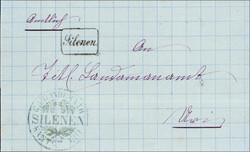 Amtlich
Silenen.
An
Landammanamt
Uri
SILENEN